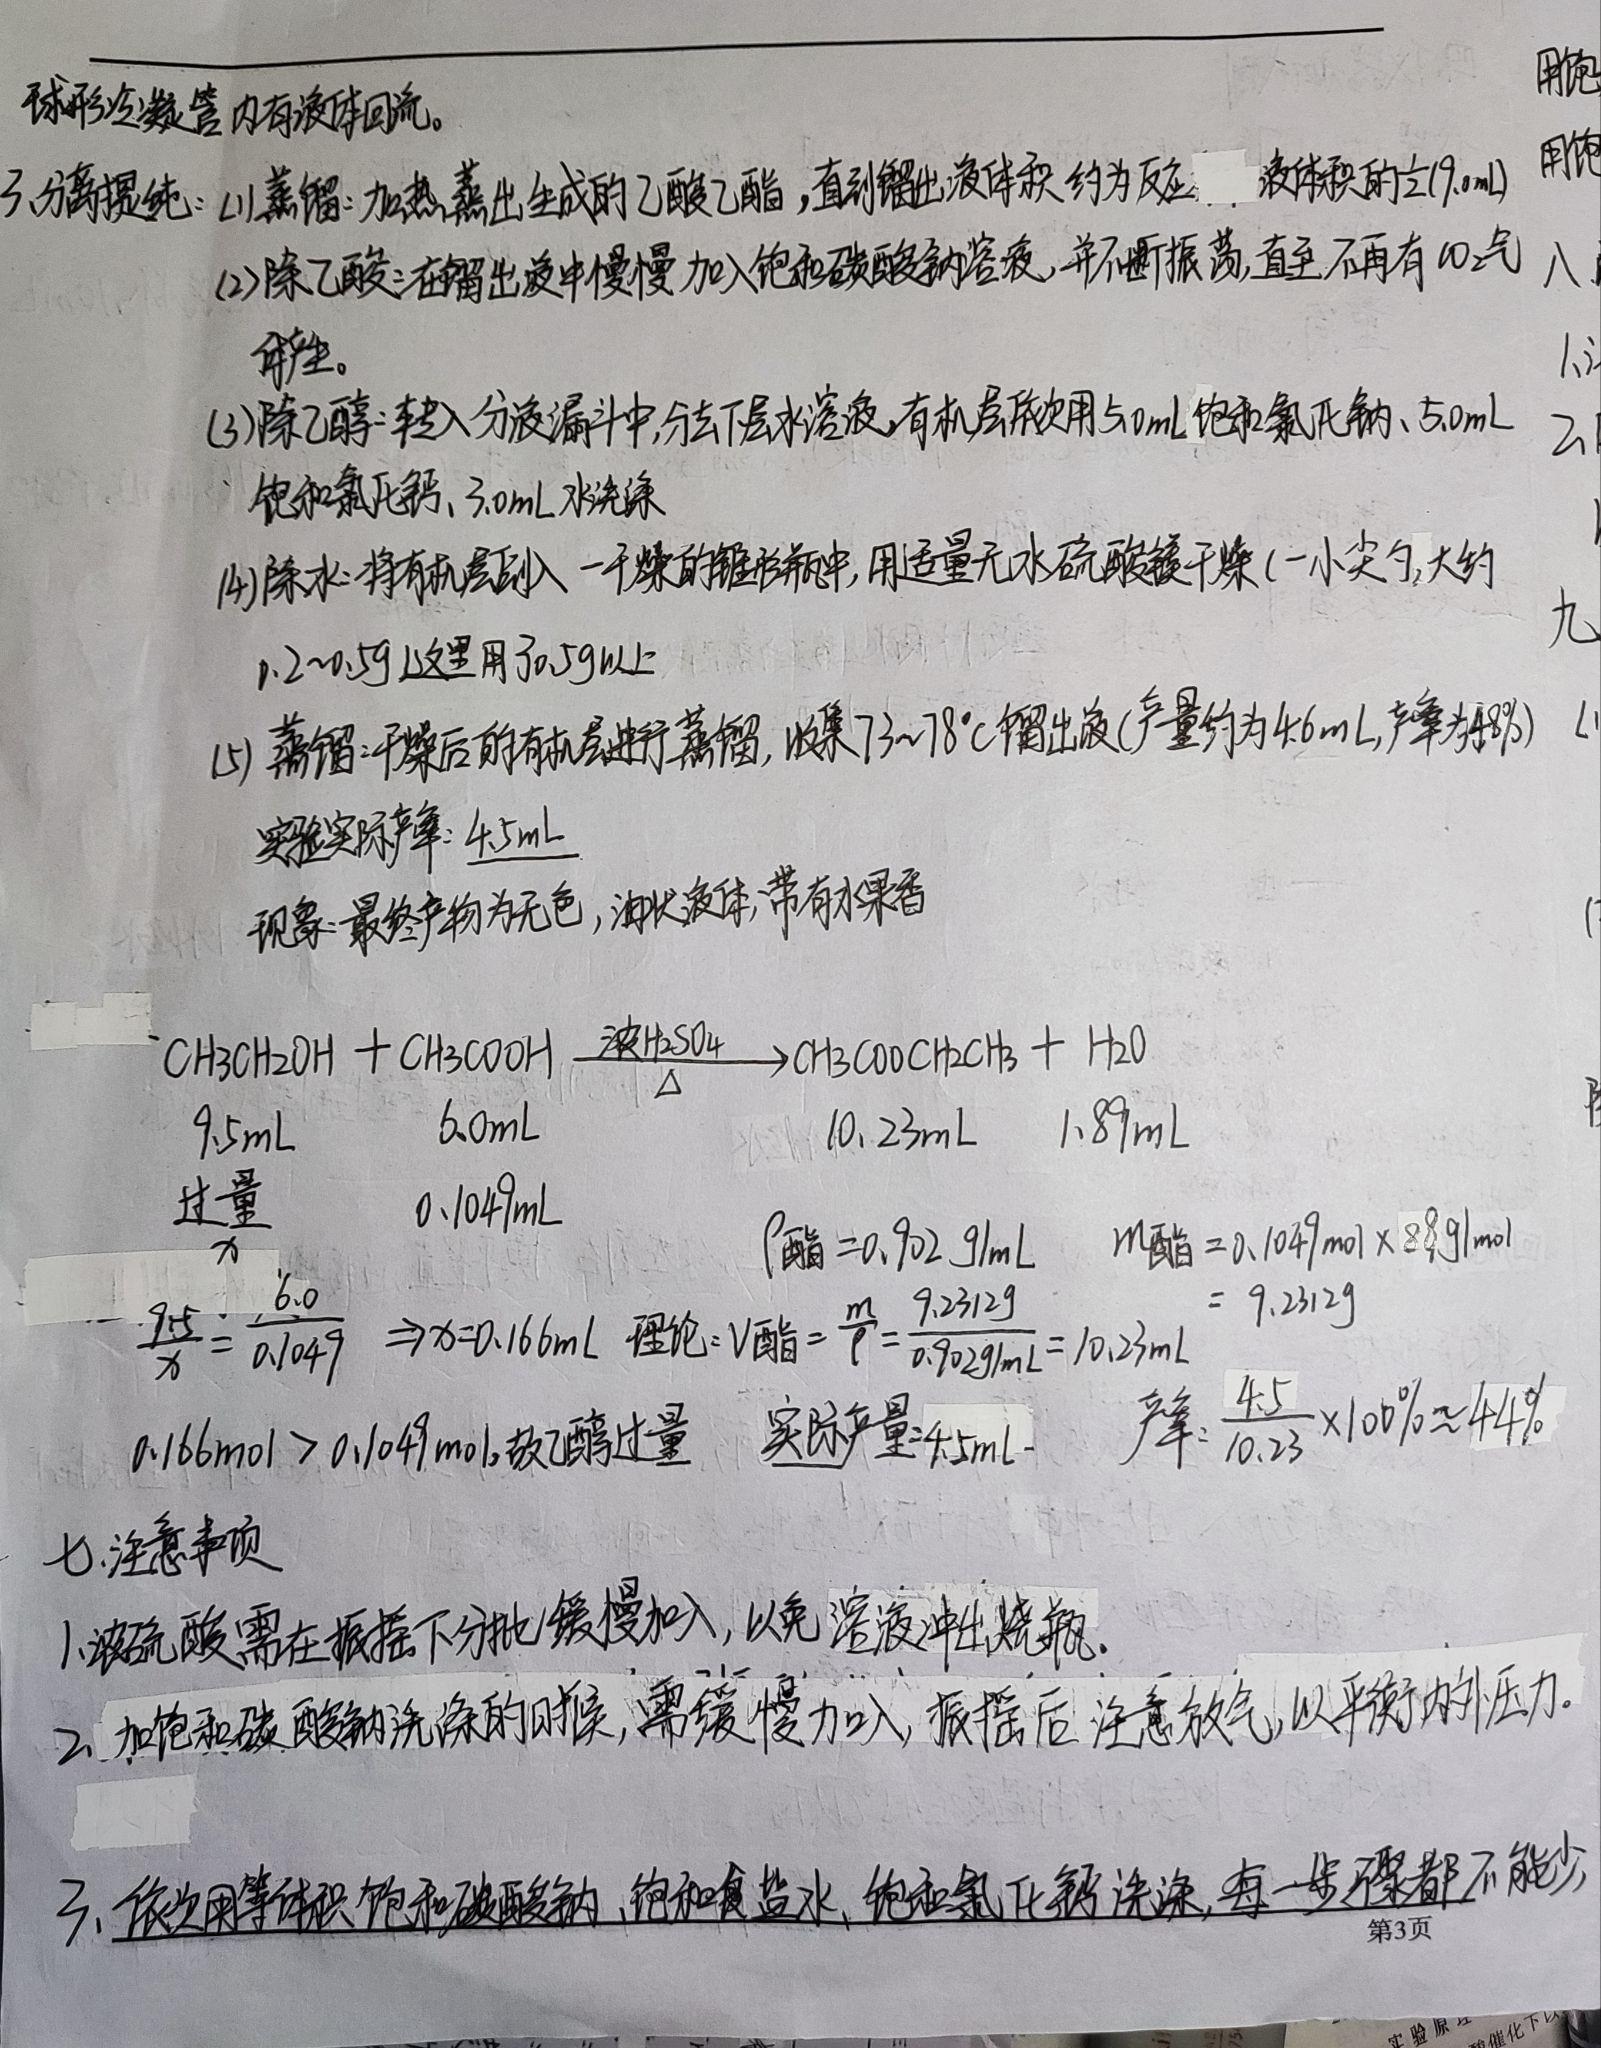 球形冷凝管内有液体回流。
用饱
3、分离提纯：(1)蒸馏：加热蒸出生成的乙酸乙酯，直到馏出液体积约为反应 液体积的½(9.0mL)
用饱
(2)除乙酸：在馏出液中慢慢加入饱和碳酸钠溶液，并不断振荡，直至不再有CO2气
八
体产生。
1、
(3)除乙醇：转入分液漏斗中，分去下层水溶液，有机层依次用5.0mL饱和氯化钠、5.0mL
2、
饱和氯化钙、3.0mL水洗涤
(4)除水：将有机层倒入一干燥的锥形瓶中，用适量无水硫酸镁干燥(一小尖勺，大约
0.2~0.5g)这里用了0.5g以上
九
(5)蒸馏：干燥后的有机层进行蒸馏，收集73~78℃馏出液(产量约为4.6mL，产率为48%)
实验实际产率：4.5mL
现象：最终产物为无色，油状液体，带有水果香
CH3CH2OH + CH3COOH 浓H2SO4 △ → CH3COOCH2CH3 + H2O
9.5mL 6.0mL 10.23mL 1.89mL
过量 0.1049mL
x
ρ酯=0.902g/mL m酯=0.1049mol×88g/mol
= 9.2312g
9.5/x = 6.0/0.1049 ⇒x=0.166mL 理论：V酯=m/ρ=9.2312g/0.902g/mL=10.23mL
0.166mol > 0.1049mol，故乙醇过量 实际产量=4.5mL 产率：4.5/10.23×100%≈44%
七、注意事项
1、浓硫酸需在振摇下分批缓慢加入，以免溶液冲出烧瓶.
2、加饱和碳酸钠洗涤的时候，需缓慢加入，振摇后注意放气，以平衡内外压力.
3、依次用等体积饱和碳酸钠、饱和食盐水、饱和氯化钙洗涤，每一步骤都不能少
第3页
实验原理
酸催化下以